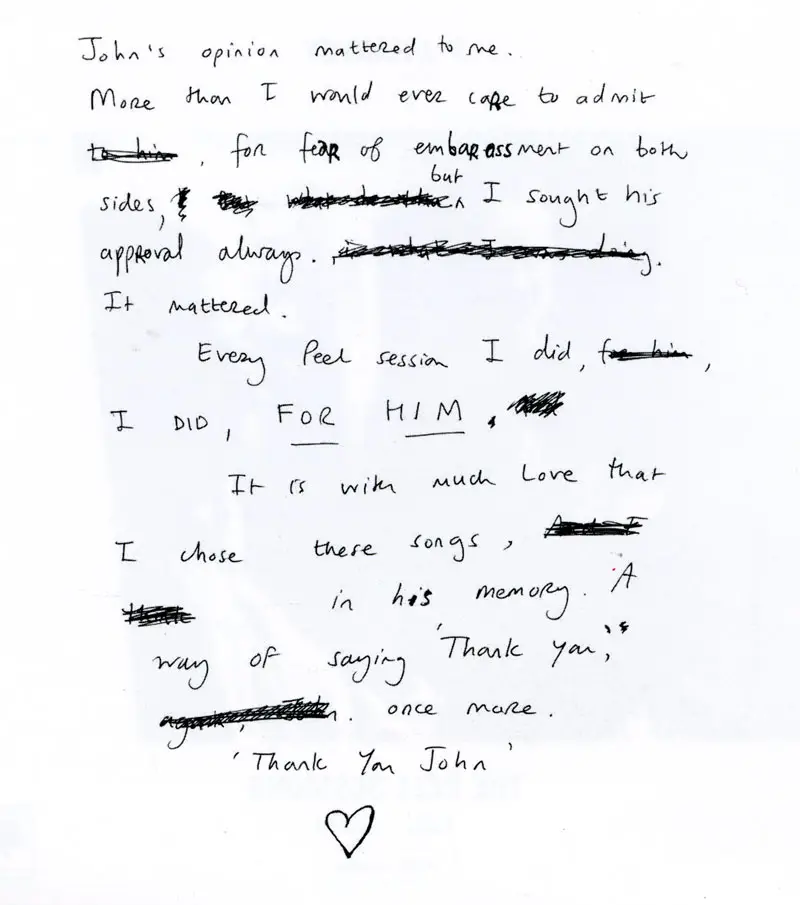 John's opinion mattered to me.
More than I would ever care to admit
to him, for fear of embarassment on both
but
sides, I sought his
approval always.
It mattered.
Every Peel session I did, for him,
I DID, FOR HIM.
It is with much Love that
I chose these songs,
in his memory. A
way of saying 'Thank you,'
once more.
'Thank You John'